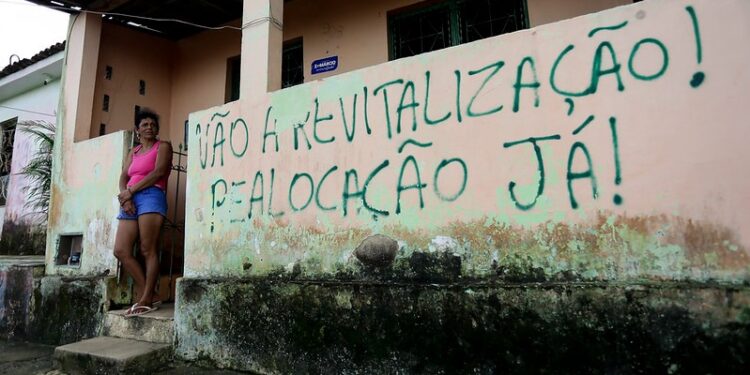 NÃO A REVITALIZAÇÃO!
REALOCAÇÃO JÁ!